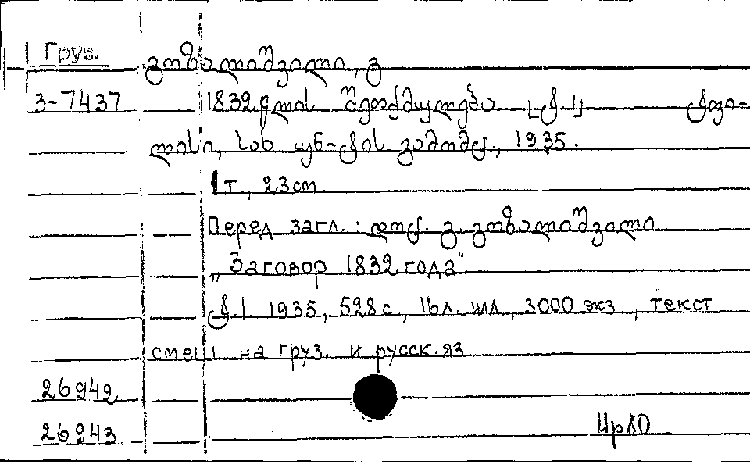 Груз. გოზალიშვილი, გ
3-7437 1832 წლის შეთქმულება [ტ. 1] ტფი-
ლისი, სახ უნ-ტის გამომც., 1935.
1 т., 23 cm
Перед загл.: დოც. გ. გოზალიშვილი
„Заговор 1832 года"
ტ. 1 1935, 528 с., 16 л. илл, 3000 экз, текст
смеш на груз. и русск. яз
26942
26943 ИрЛО